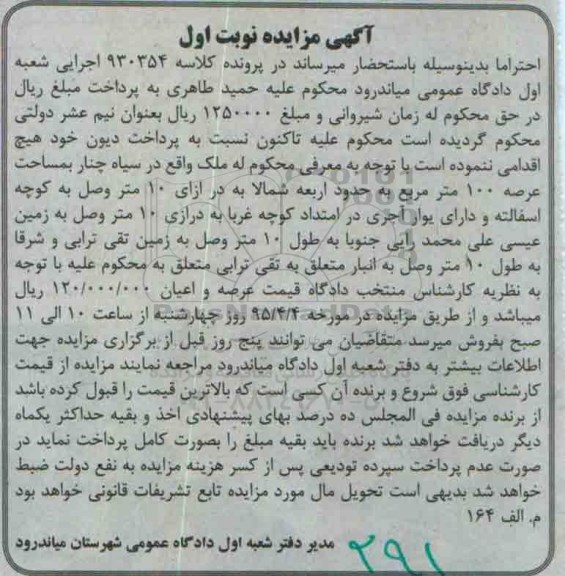 آگهی مزایده نوبت اول
احتراما بدینوسیله باستحضار میرساند در پرونده کلاسه ۹۳۰۳۵۴ اجرایی شعبه
اول دادگاه عمومی میاندرود محکوم علیه حمید طاهری به پرداخت مبلغ ریال
در حق محکوم له زمان شیروانی و مبلغ ۱۲۵۰۰۰۰ ریال بعنوان نیم عشر دولتی
محکوم گردیده است محکوم علیه تاکنون نسبت به پرداخت دیون خود هیچ
اقدامی ننموده است با توجه به معرفی محکوم له ملک واقع در سیاه چنار بمساحت
عرصه ۱۰۰ متر مربع به حدود اربعه شمالا به در ازای ۱۰ متر وصل به کوچه
اسفالته و دارای یوار آجری در امتداد کوچه غربا به درازی ۱۰ متر وصل به زمین
عیسی علی محمد رایی جنوبا به طول ۱۰ متر وصل به زمین تقی ترابی و شرقا
به طول ۱۰ متر وصل به انبار متعلق به تقی ترابی متعلق به محکوم علیه با توجه
به نظریه کارشناس منتخب دادگاه قیمت عرصه و اعیان ۱۲۰/۰۰۰/۰۰۰ ریال
میباشد و از طریق مزایده در مورخه ۹۵/۴/۴ روز چهارشنبه از ساعت ۱۰ الی ۱۱
صبح بفروش میرسد متقاضیان می توانند پنج روز قبل از برگزاری مزایده جهت
اطلاعات بیشتر به دفتر شعبه اول دادگاه میاندرود مراجعه نمایند مزایده از قیمت
کارشناسی فوق شروع و برنده آن کسی است که بالاترین قیمت را قبول کرده باشد
از برنده مزایده فی المجلس ده درصد بهای پیشنهادی اخذ و بقیه حداکثر یکماه
دیگر دریافت خواهد شد برنده باید بقیه مبلغ را بصورت کامل پرداخت نماید در
صورت عدم پرداخت سپرده تودیعی پس از کسر هزینه مزایده به نفع دولت ضبط
خواهد شد بدیهی است تحویل مال مورد مزایده تابع تشریفات قانونی خواهد بود
م. الف ۱۶۴
مدیر دفتر شعبه اول دادگاه عمومی شهرستان میاندرود
۲۹۱